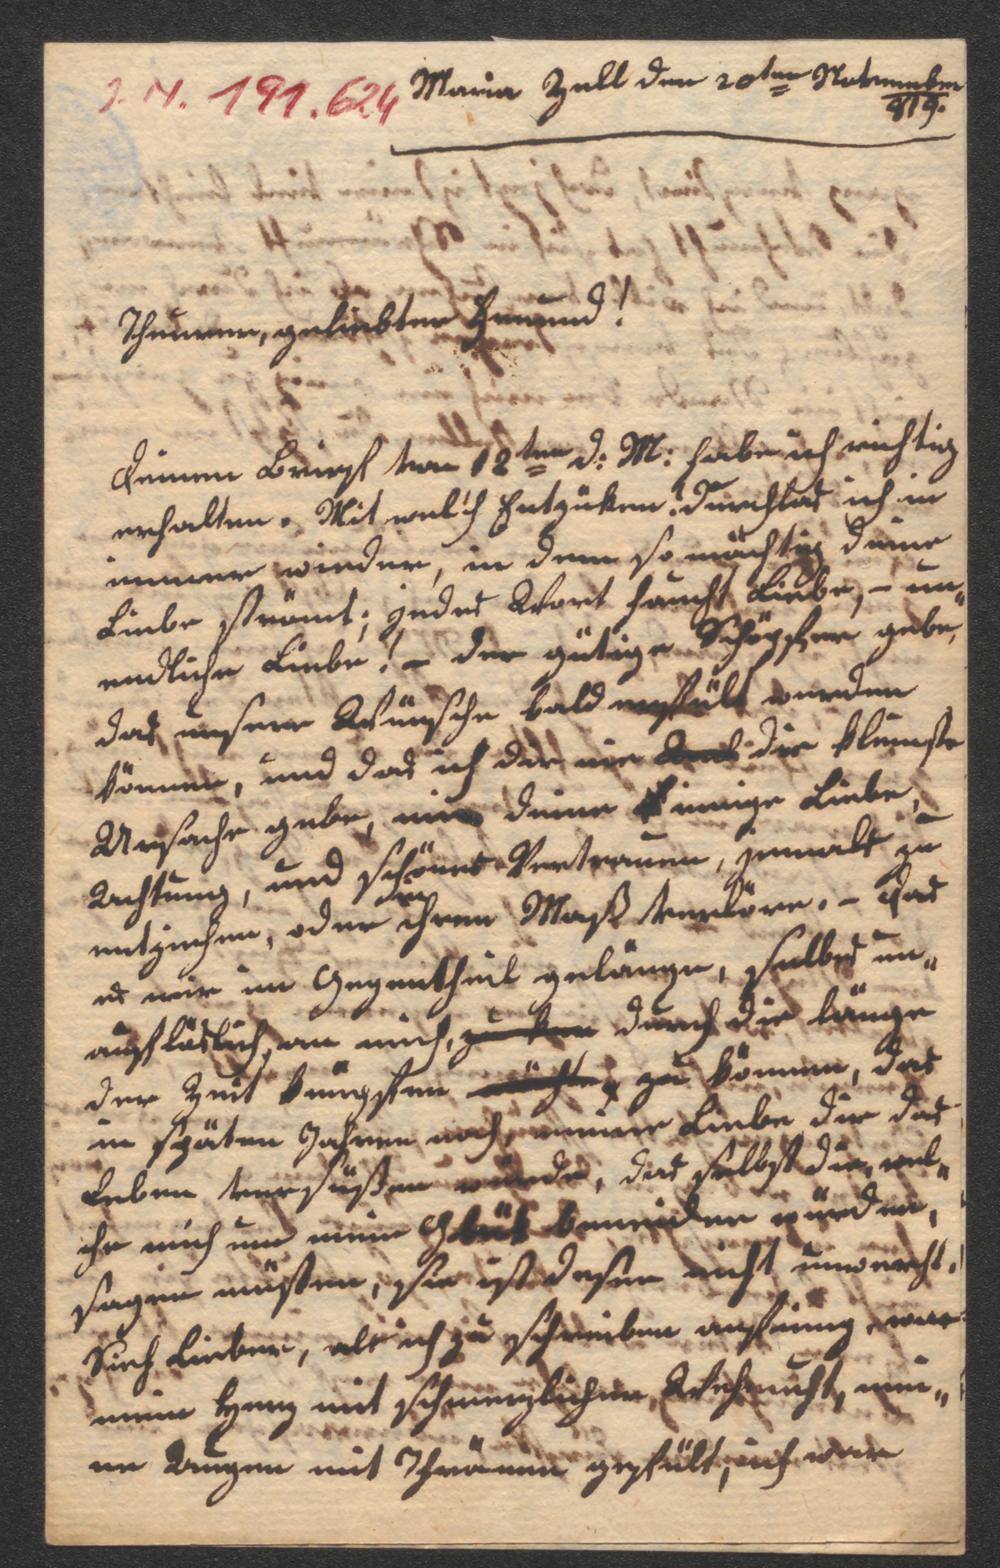 I. N. 191.624
Maria Zell den 20ten November
819.
Theurer, geliebter Freund!
Deinen Brief von 12ten d: M: habe ich richtig
erhalten. Mit welch Entzüken durchlas ich in
immer wieder, in dem so mächtig deine
Liebe strömt; jedes Wort haucht Liebe, – un„
endliche Liebe! – der gütige Schöpfer gebe,
das unsere Wünsche bald erfült werden
können, und das ich dir nie die kleinste
Ursache gebe, mir deine innige Liebe,
Achtung, und schönes Vertrauen, jemals zu
entziehen, oder ihrem Maß verlöre. – Das
es mir im Gegentheil gelänge, selbes un„
auflöslich, an mich, durch die länge
der Zeit knüpfen zu können, das
in späten Jahren noch, meine Liebe dir das
Leben versüßen würde, das selbst die, wel„
che mich um mein Glük beneiden würden,
sagen müßen, sie ist desen nicht unwerth.
Sieh Lieber, als ich zu schreiben anfieng, war
mein Herz mit schmerzlicher Wehmuth, mei„
ne Augen mit Thränen gefült, ich war